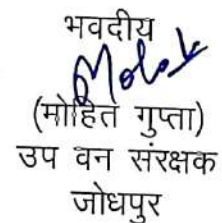 भवदीय
(मोहित गुप्ता)
उप वन संरक्षक
जोधपुर